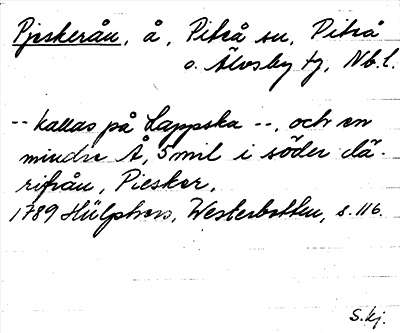 Pjeskerån, å, Piteå sn, Piteå
o. Älvsby tg, Nb. l.
-- kallas på Lappska --, och en
mindre Å, 5 mil i söder dä-
rifrån, Piesker,
1789 Hülphers, Westerbotten, s. 116.
S. kj.